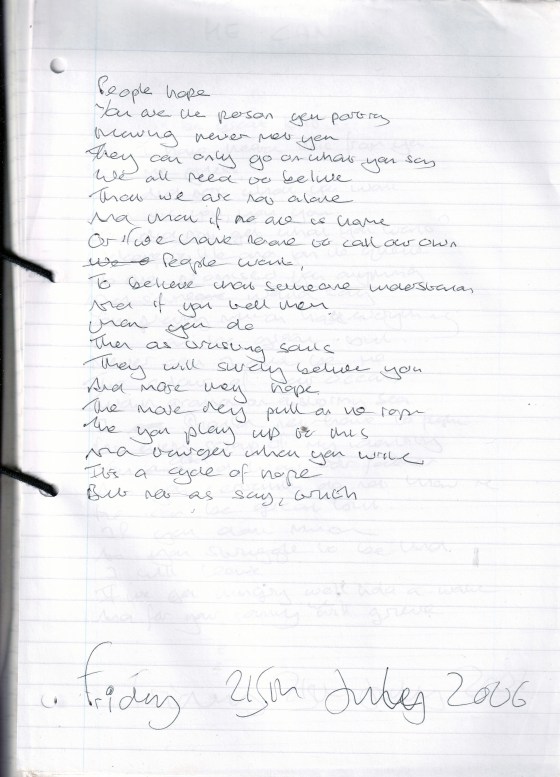 People hope
You are the person you portray
knowing never met you
They can only go on what you say
We all need to belive
That we are not alone
And that if no one is home
Or if we have none to call our own
People want,
To believe that someone understands
And if you tell them
that you do
Then as trusting souls
They will surely believe you
And more they hope
The more they pull on the rope
The you play up to this
And when you write
Its a cycle of hope
But not as say, truth
Friday 21st July 2006